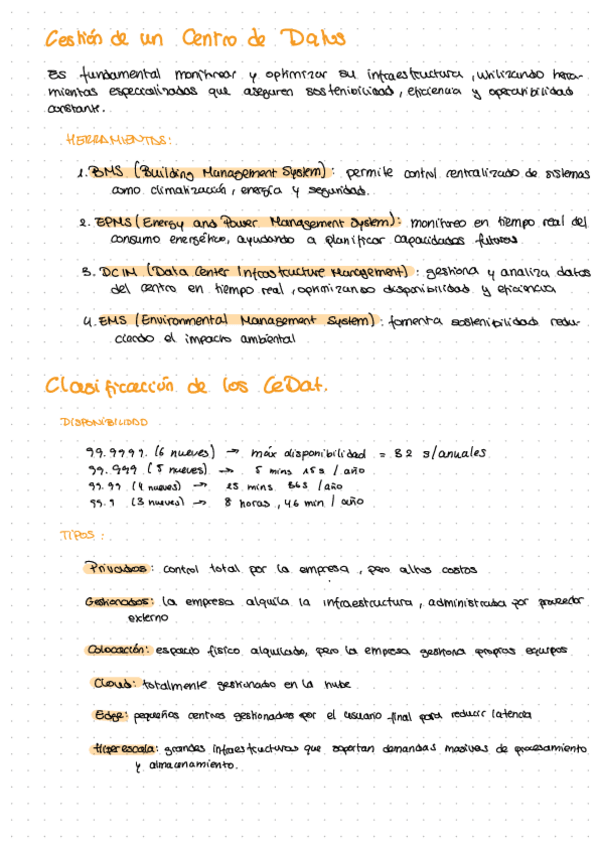 Gestión de un Centro de Datos
Es fundamental monitorear y optimizar su infraestructura, utilizando herra-
mientas especializadas que aseguren sostenibilidad, eficiencia y operatibilidad
constante.
HERRAMIENTAS:
1. BMS (Building Management System): permite control centralizado de sistemas
como climatización, energía y seguridad.
2. EPMS (Energy and Power Management System): monitoreo en tiempo real del
consumo energético, ayudando a planificar capacidades futuras
3. DCIM (Data Center Infrastructure Management): gestiona y analiza datos
del centro en tiempo real, optimizando disponibilidad y eficiencia
4. EMS (Environmental Management System): fomenta sostenibilidad redu-
ciendo el impacto ambiental
Clasificación de los CeDat.
DISPONIBILIDAD
99.9999. (6 nueves) → máx disponibilidad = 32 s/anuales
99.999 (5 nueves) → 5 mins 15s / año
99.99 (4 nueves) → mins / año
99.9 (3 nueves) → 8 horas, 46 min / año
TIPOS:
Privados: control total por la empresa, pero altos costos
Gestionados: la empresa alquila la infraestructura, administrada por proveedor
externo
Colocación: espacio físico alquilado, pero la empresa gestiona propios equipos
Cloud: totalmente gestionado en la nube
Edge: pequeños centros gestionados por el usuario final para reducir latencia
Hiperescala: grandes infraestructuras que soportan demandas masivas de procesamiento
y almacenamiento.